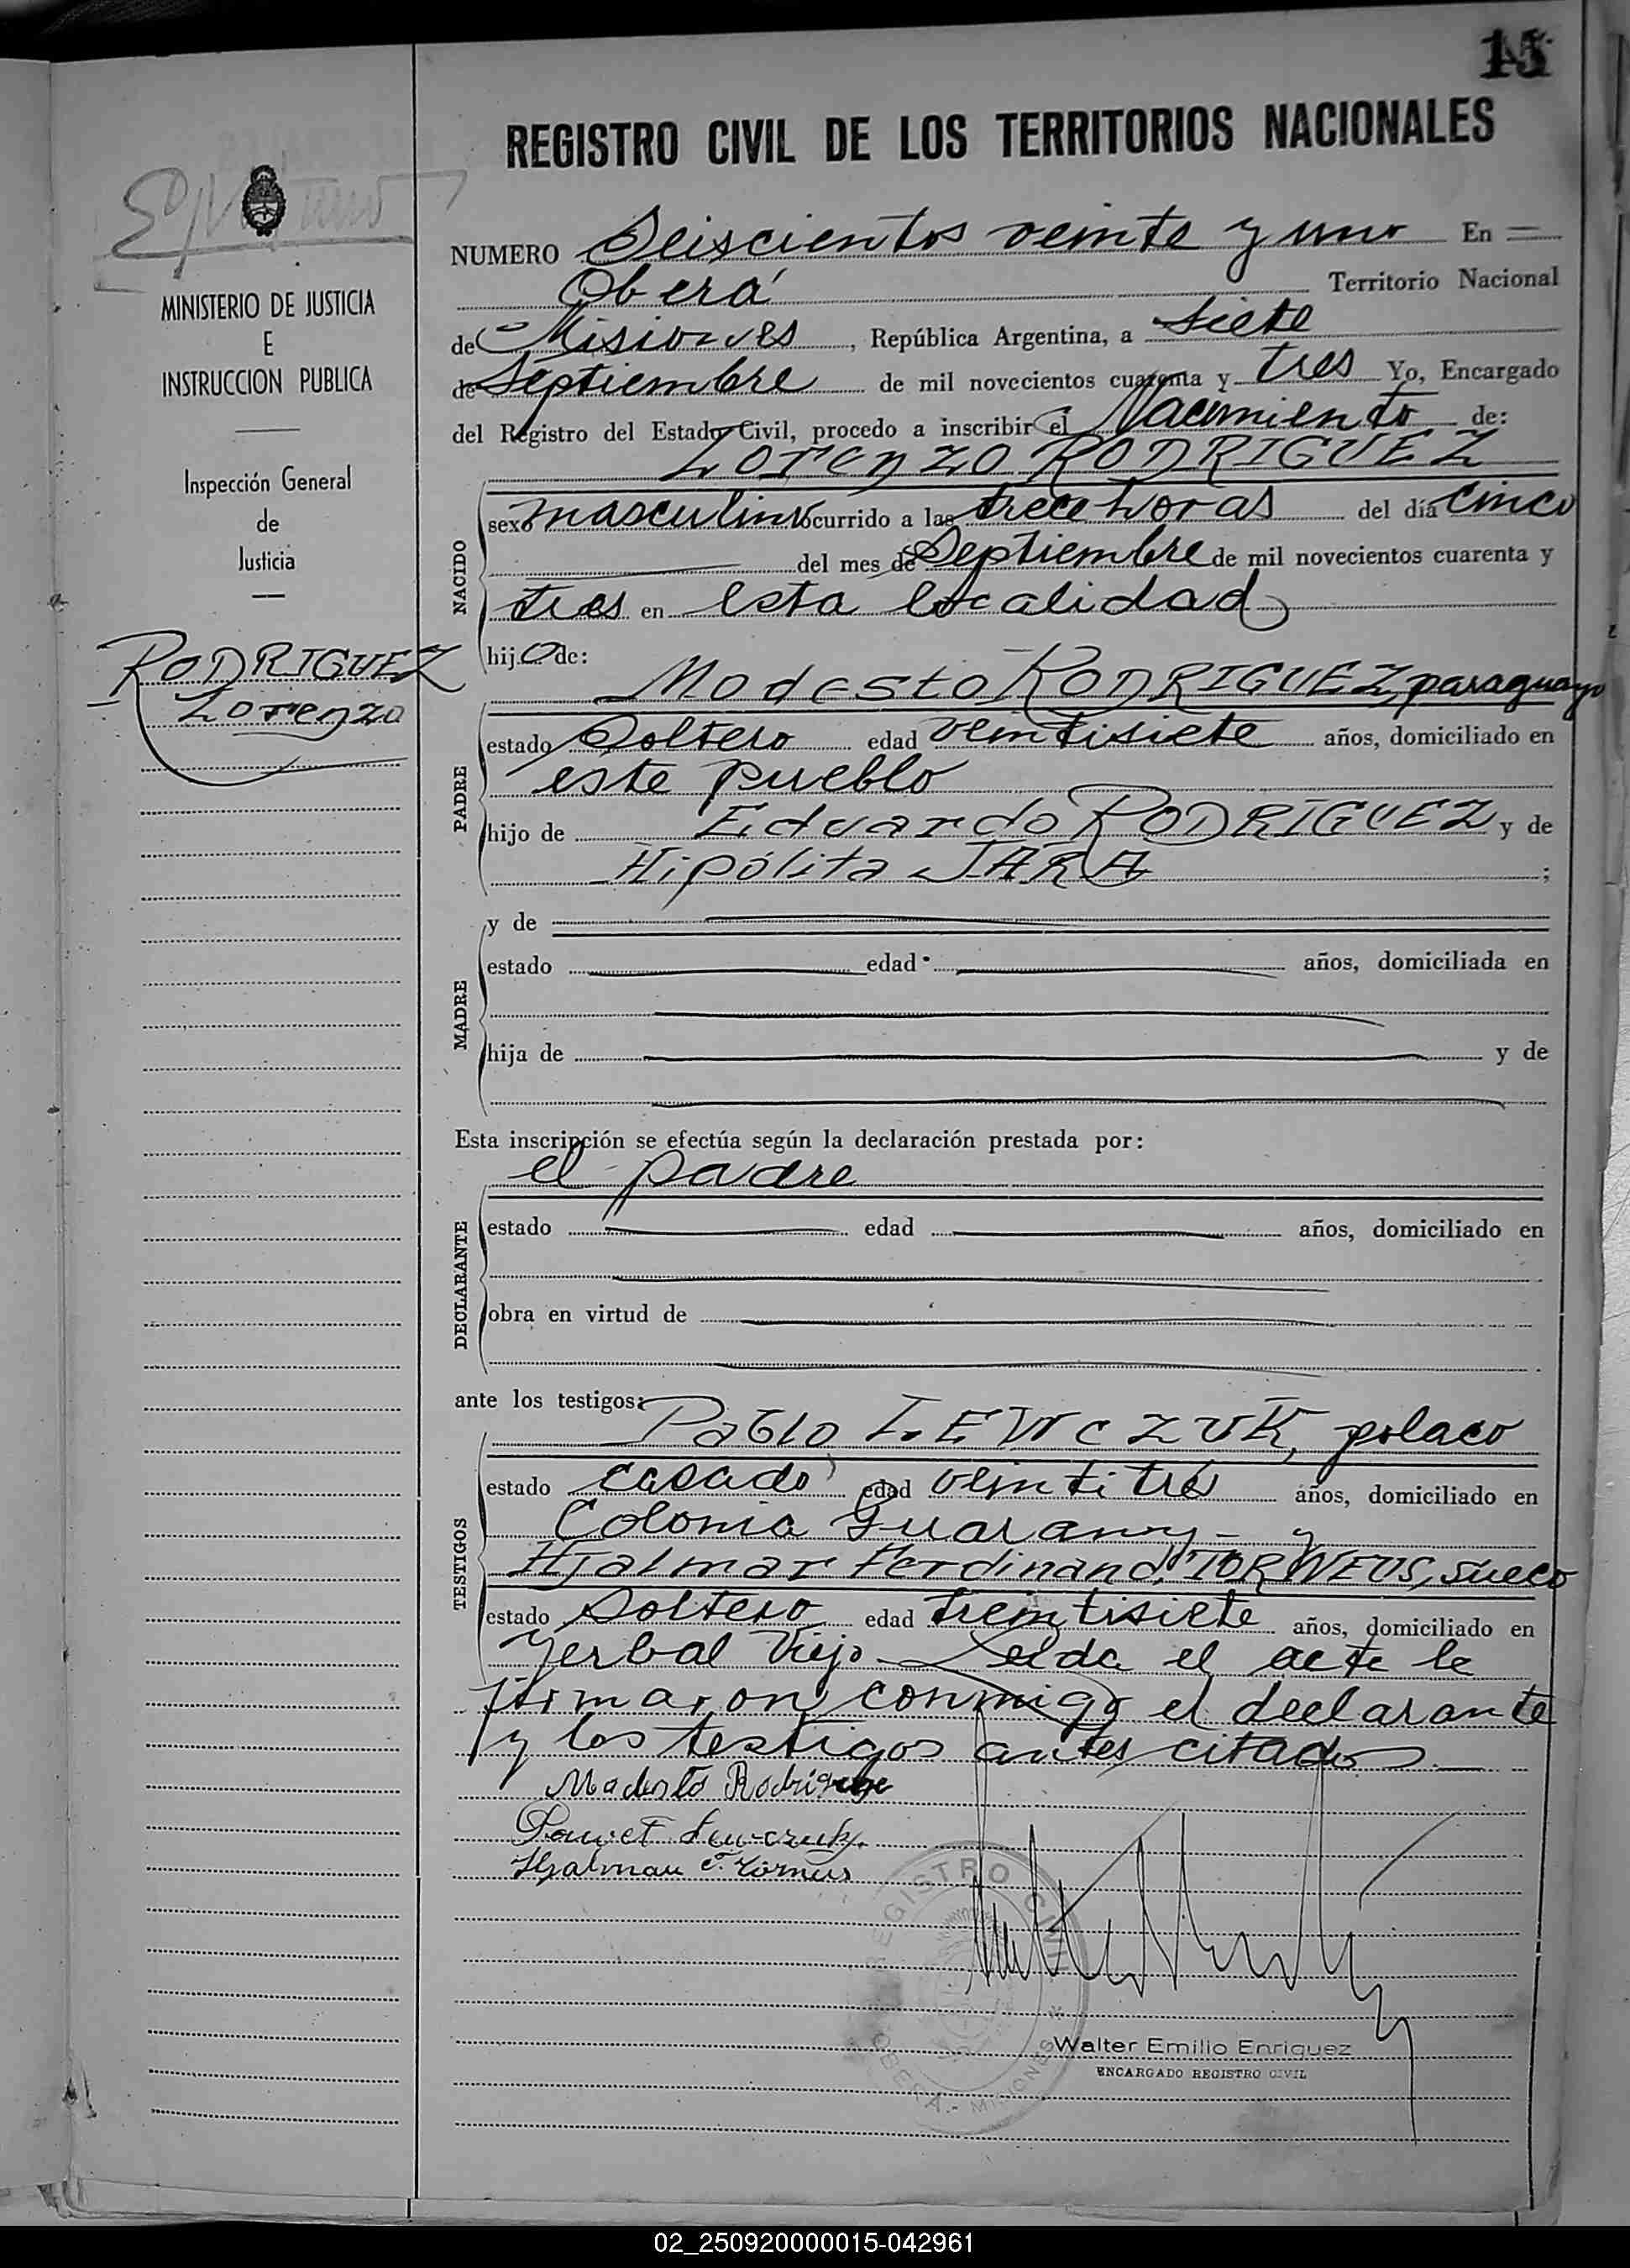 15
REGISTRO CIVIL DE LOS TERRITORIOS NACIONALES
MINISTERIO DE JUSTICIA
E
INSTRUCCION PUBLICA
Inspección General
de
Justicia
RODRIGUEZ
Lorenzo
NUMERO Seiscientos veinte y uno En
Oberá Territorio Nacional
de Misiones, República Argentina, a siete
de Septiembre de mil novecientos cuarenta y tres Yo, Encargado
del Registro del Estado Civil, procedo a inscribir el Nacimiento de:
Lorenzo RODRIGUEZ
NACIDO
sexo masculino ocurrido a las trece horas del día cinco
del mes de Septiembre de mil novecientos cuarenta y
tres en esta localidad
hijo de:
PADRE
Modesto RODRIGUEZ, paraguayo
estado Soltero edad veintisiete años, domiciliado en
este pueblo
hijo de Eduardo RODRIGUEZ y de
Hipólita JARA ;
MADRE
y de
estado edad años, domiciliada en
hija de y de
Esta inscripción se efectúa según la declaración prestada por:
DECLARANTE
el padre
estado edad años, domiciliado en
obra en virtud de
ante los testigos:
TESTIGOS
Pablo LEWCZUK, polaco
estado casado edad veintitres años, domiciliado en
Colonia Guarany - y
Hjalmar Ferdinand TORNEUS, sueco
estado Soltero edad treintisiete años, domiciliado en
Yerbal Viejo - Leída el acta la
firmaron conmigo el declarante
y los testigos antes citados
Modesto Rodrigue
Lewczuk
Hjalmar F. Törneus
REGISTRO CIVIL
OBERA - MISIONES
Walter Emilio Enriquez
ENCARGADO REGISTRO CIVIL
02_250920000015-042961